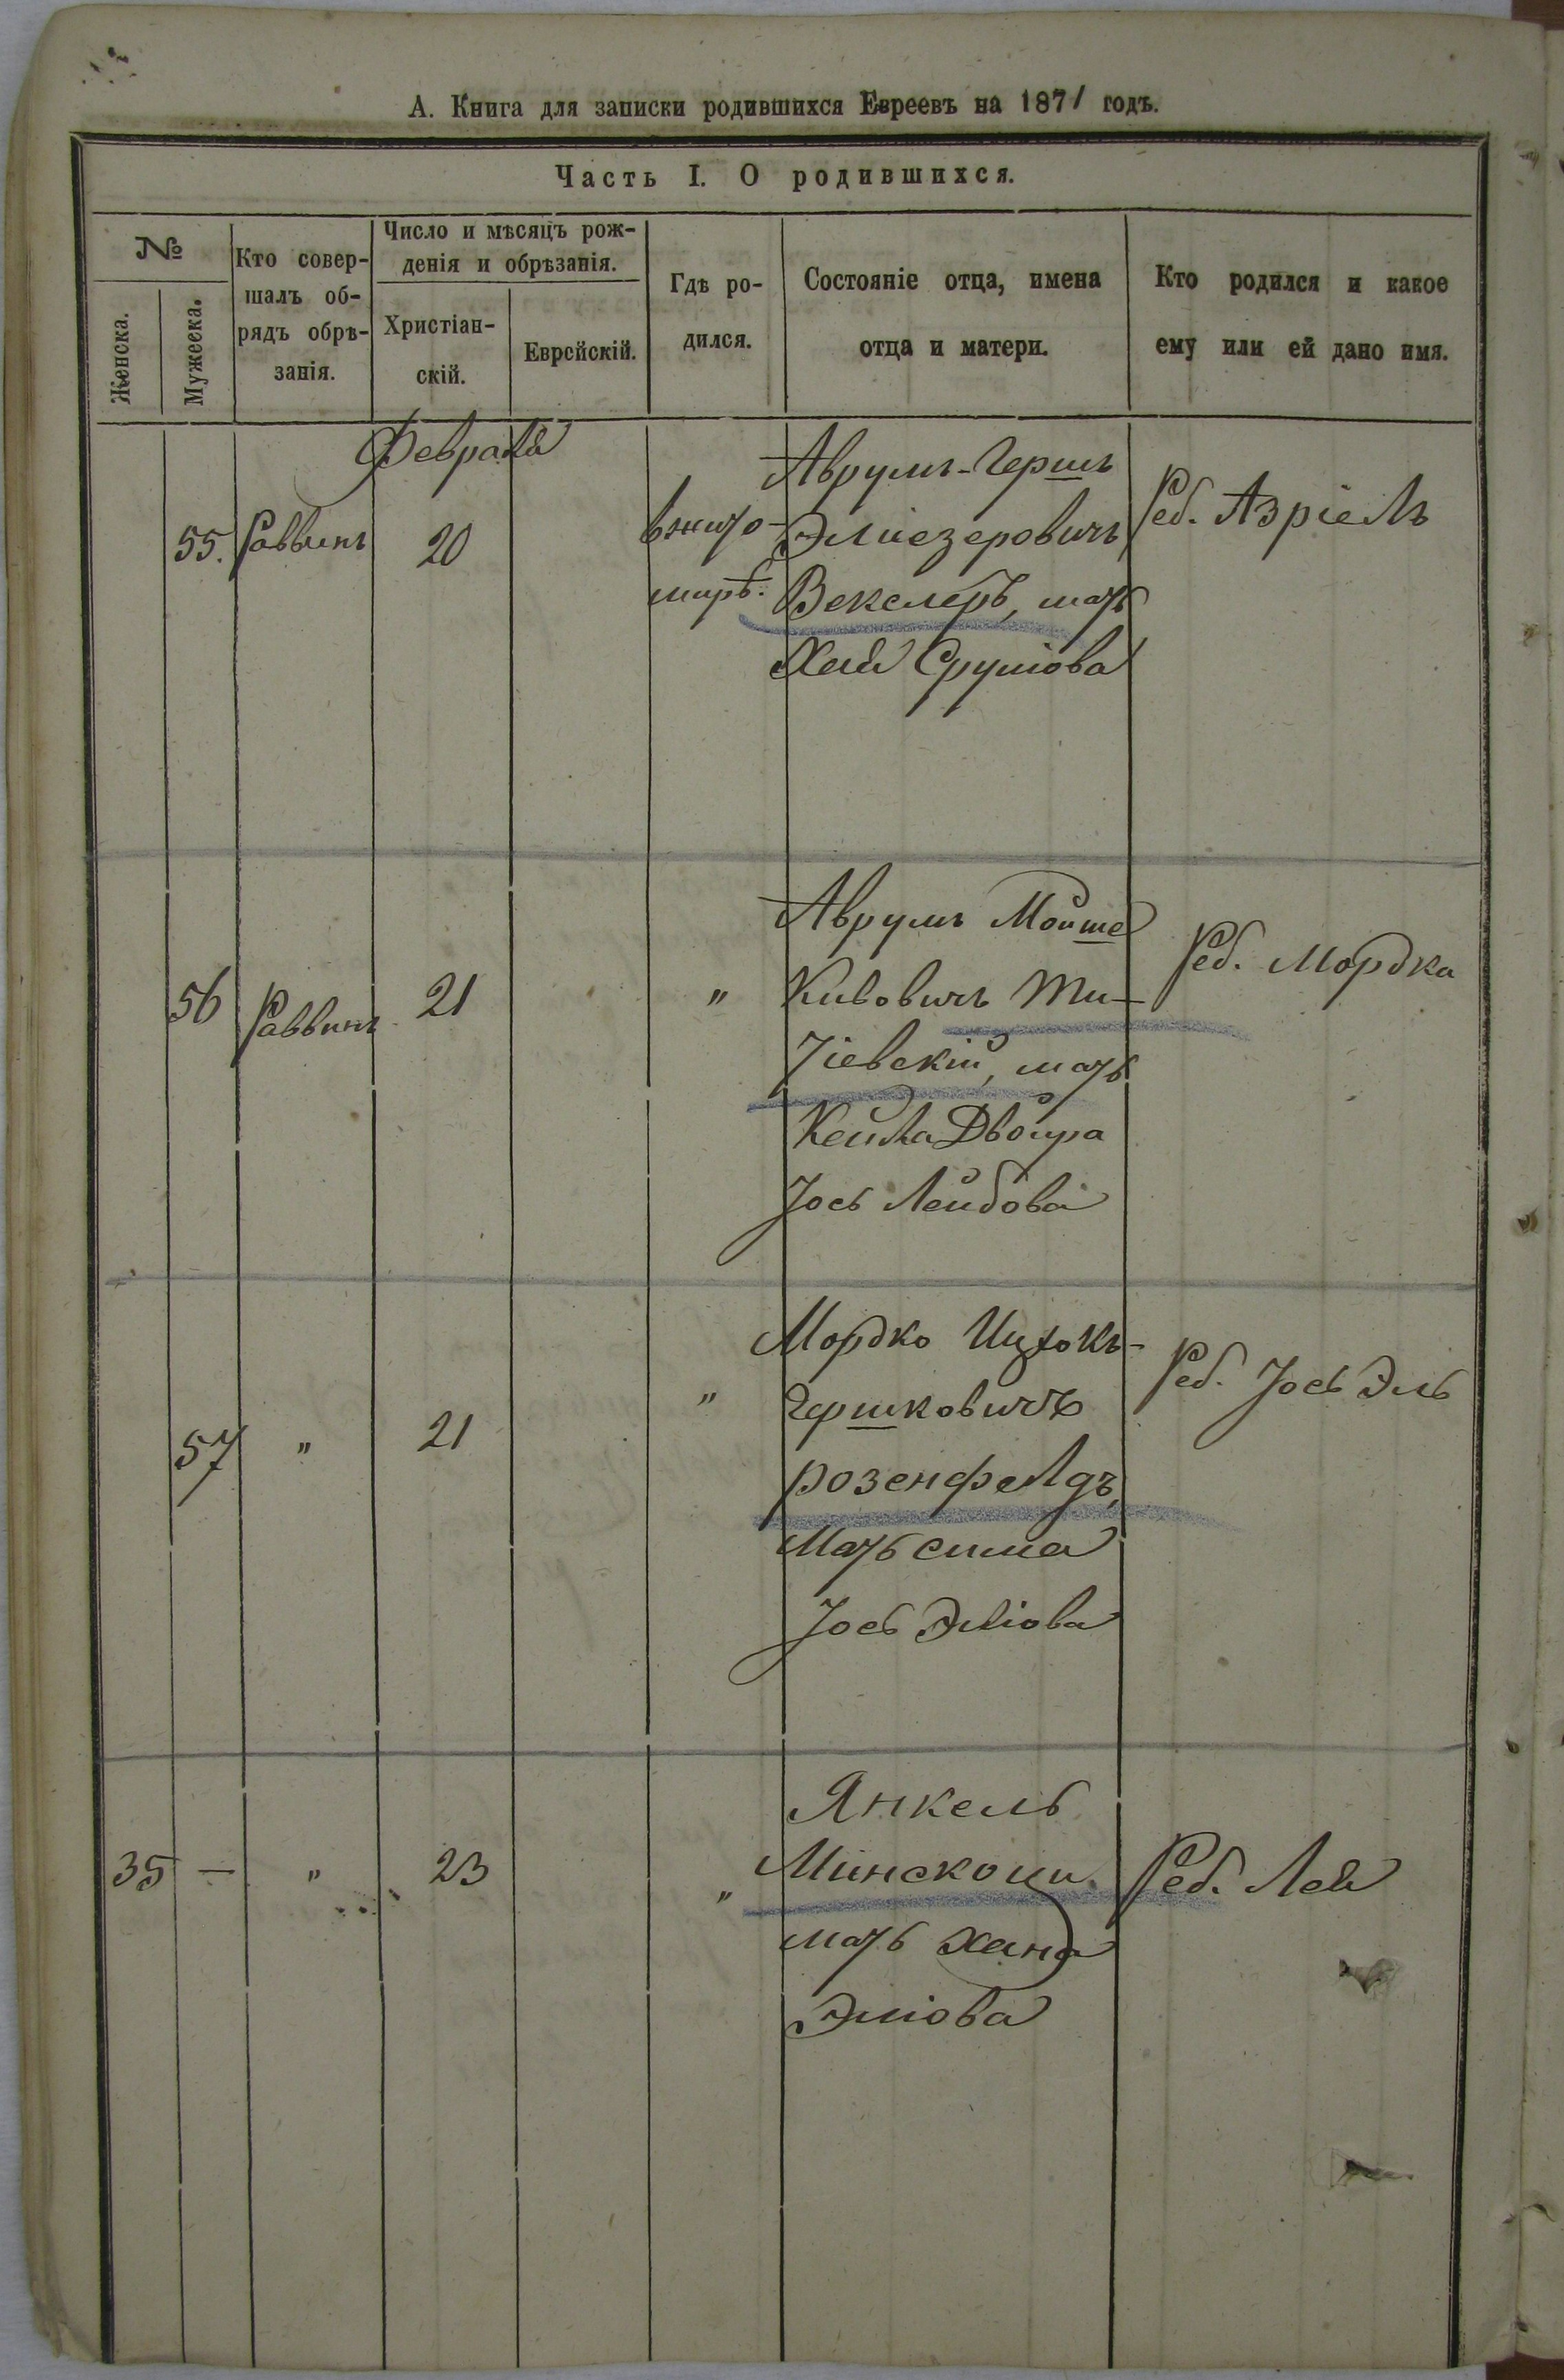 А. Книга для записки родившихся Евреевъ на 1871 годъ.
Часть I. О родившихся.
№
Женска.
Мужеска.
Кто совер-
шалъ об-
рядъ обрѣ-
занія.
Число и мѣсяцъ рож-
денія и обрѣзанія.
Христіан-
скій.
Еврейскій.
Гдѣ ро-
дился.
Состояніе отца, имена
отца и матери.
Кто родился и какое
ему или ей дано имя.
Февраля
55. Раввинъ 20
въ жито-
мирѣ.
Аврумъ-Гершъ
Эліезеровичъ
Векслеръ, мать
Хая Сруліова
Реб. Азріель
56 Раввинъ 21 "
Аврумъ Мойше
Кивовичъ
мать
Кейла Двойра
Іось Лейбова
Реб. Мордка
57 " 21 "
Мордко Ицхокъ-
Гершковичъ
розенфелдъ,
Мать сима
Іось Эліова
Реб. Іось Эль
35 — " 23 "
Янкель
мать хана
Эліова
Реб. Лея